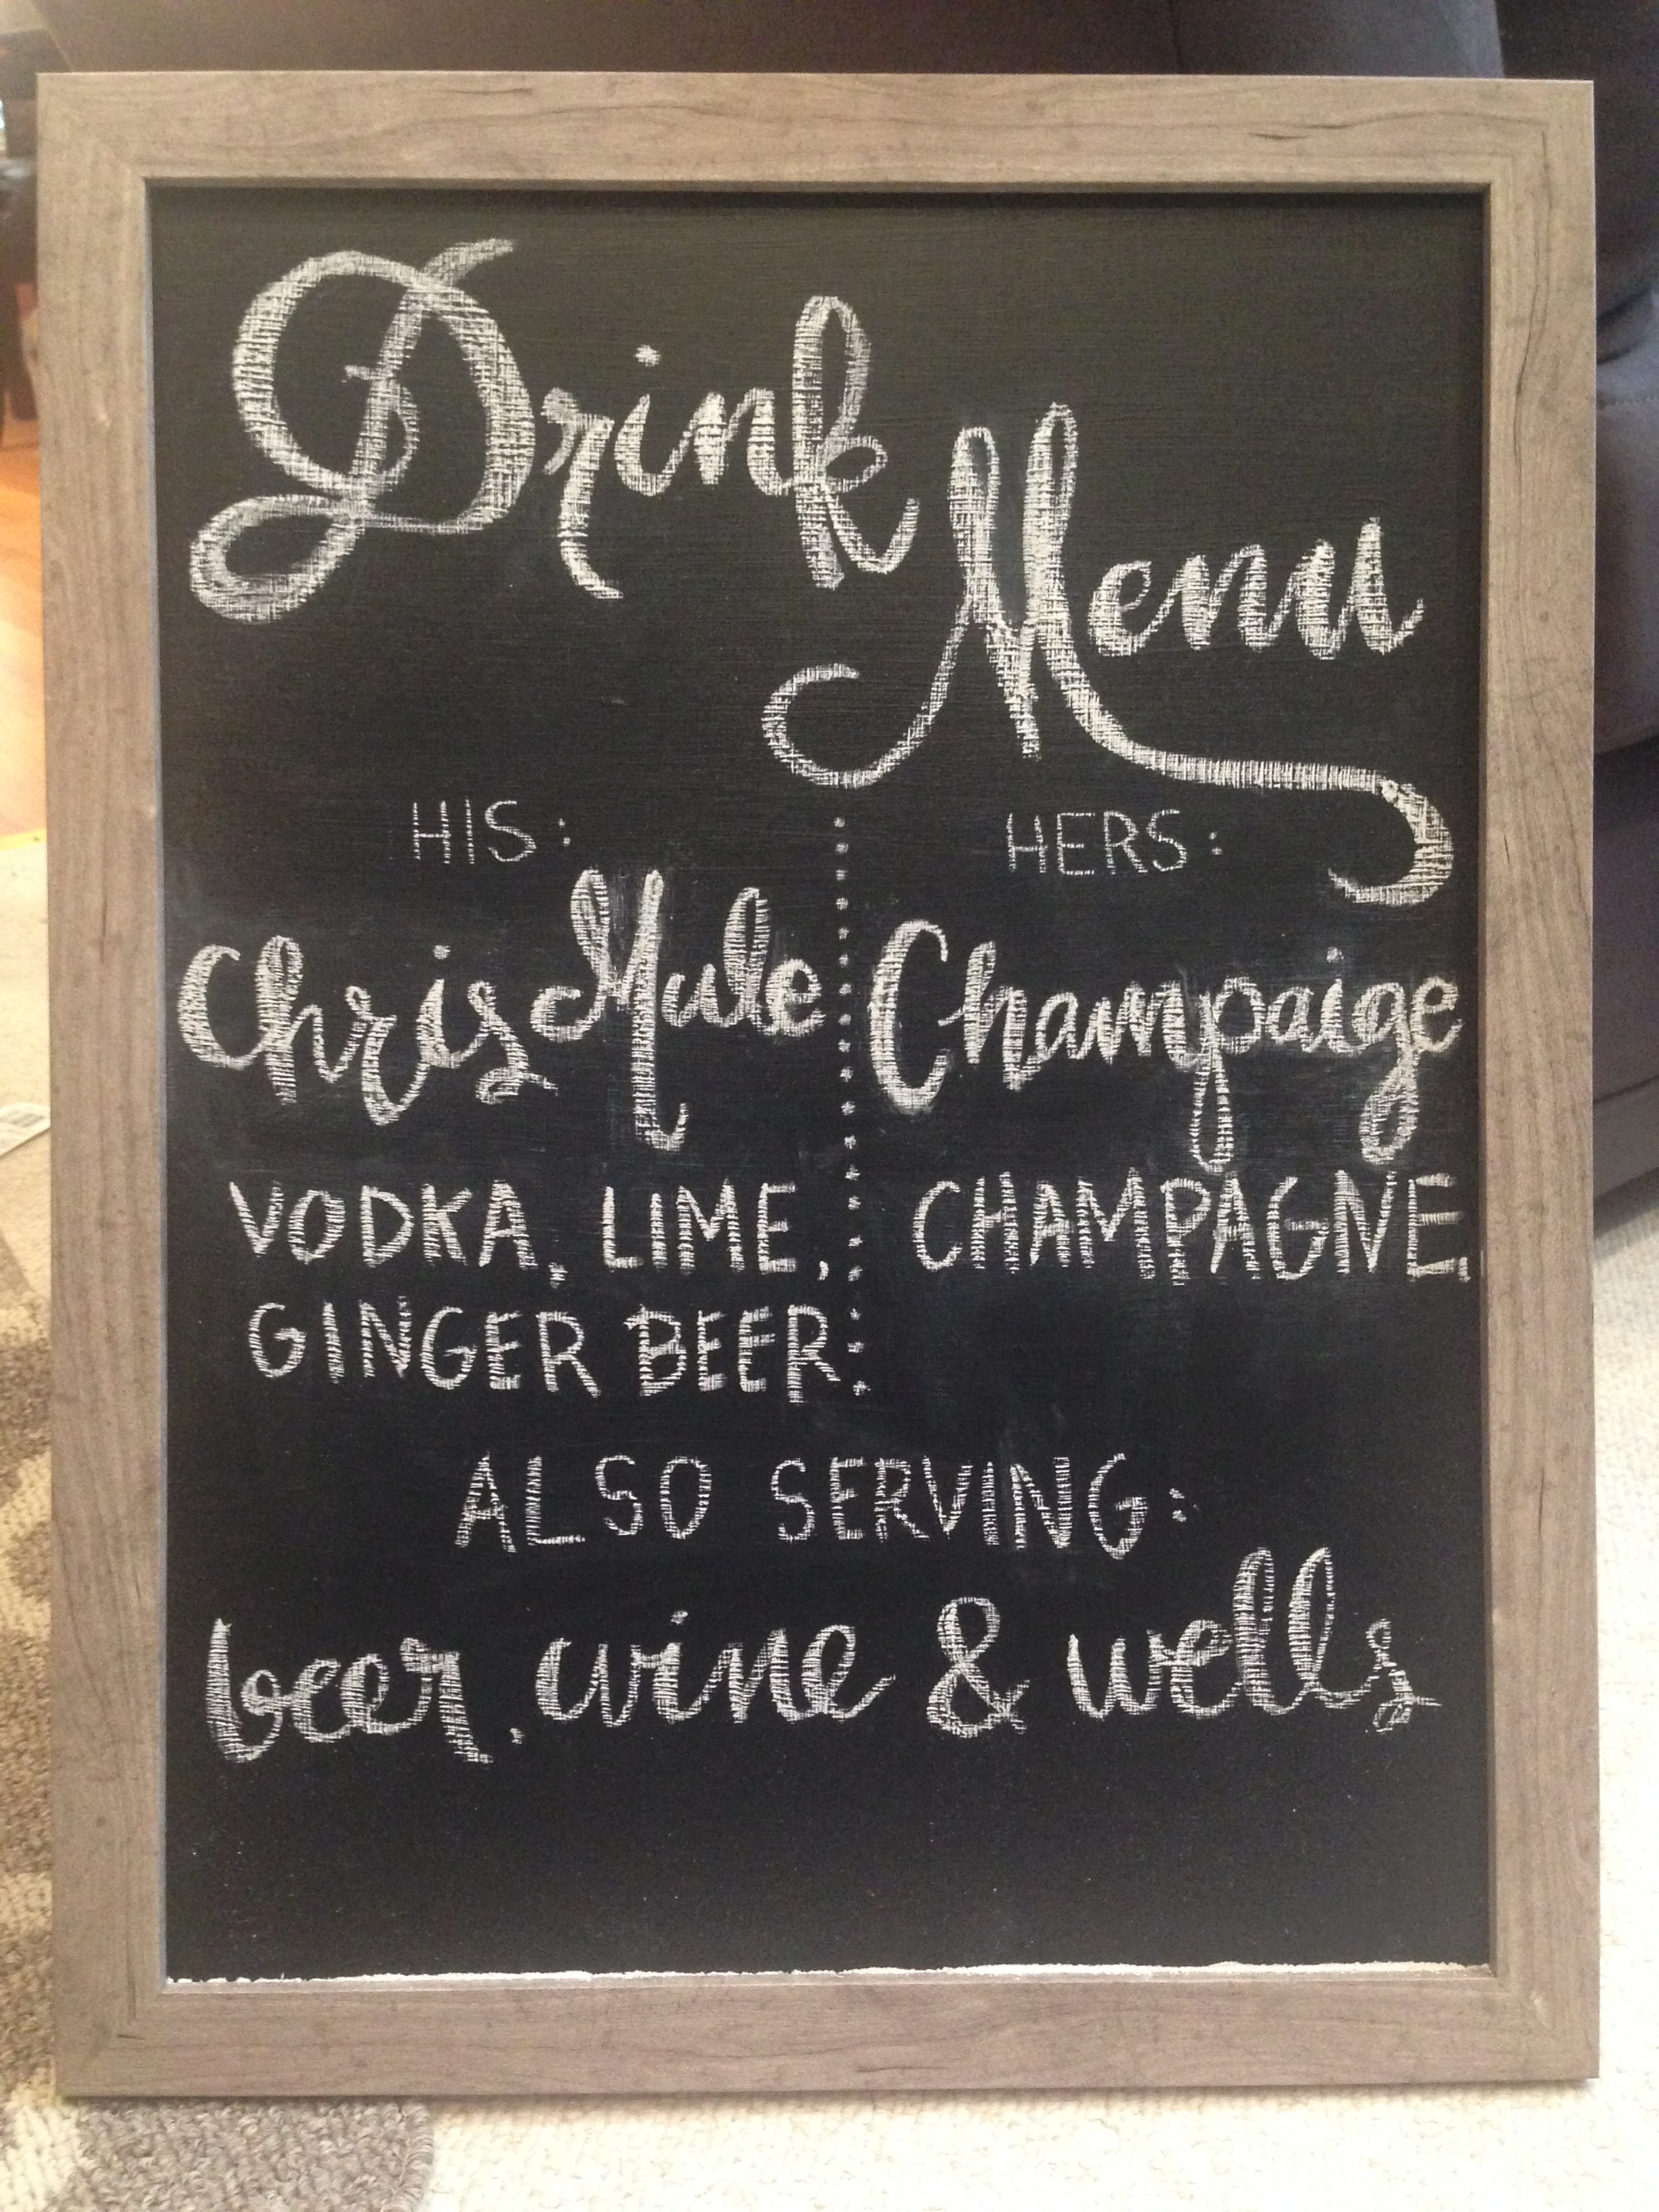 Drink
Menu
HIS:
Chris Mule
VODKA, LIME,
GINGER BEER.
HERS:
Champaige
CHAMPAGNE.
ALSO SERVING:
beer, wine & wells